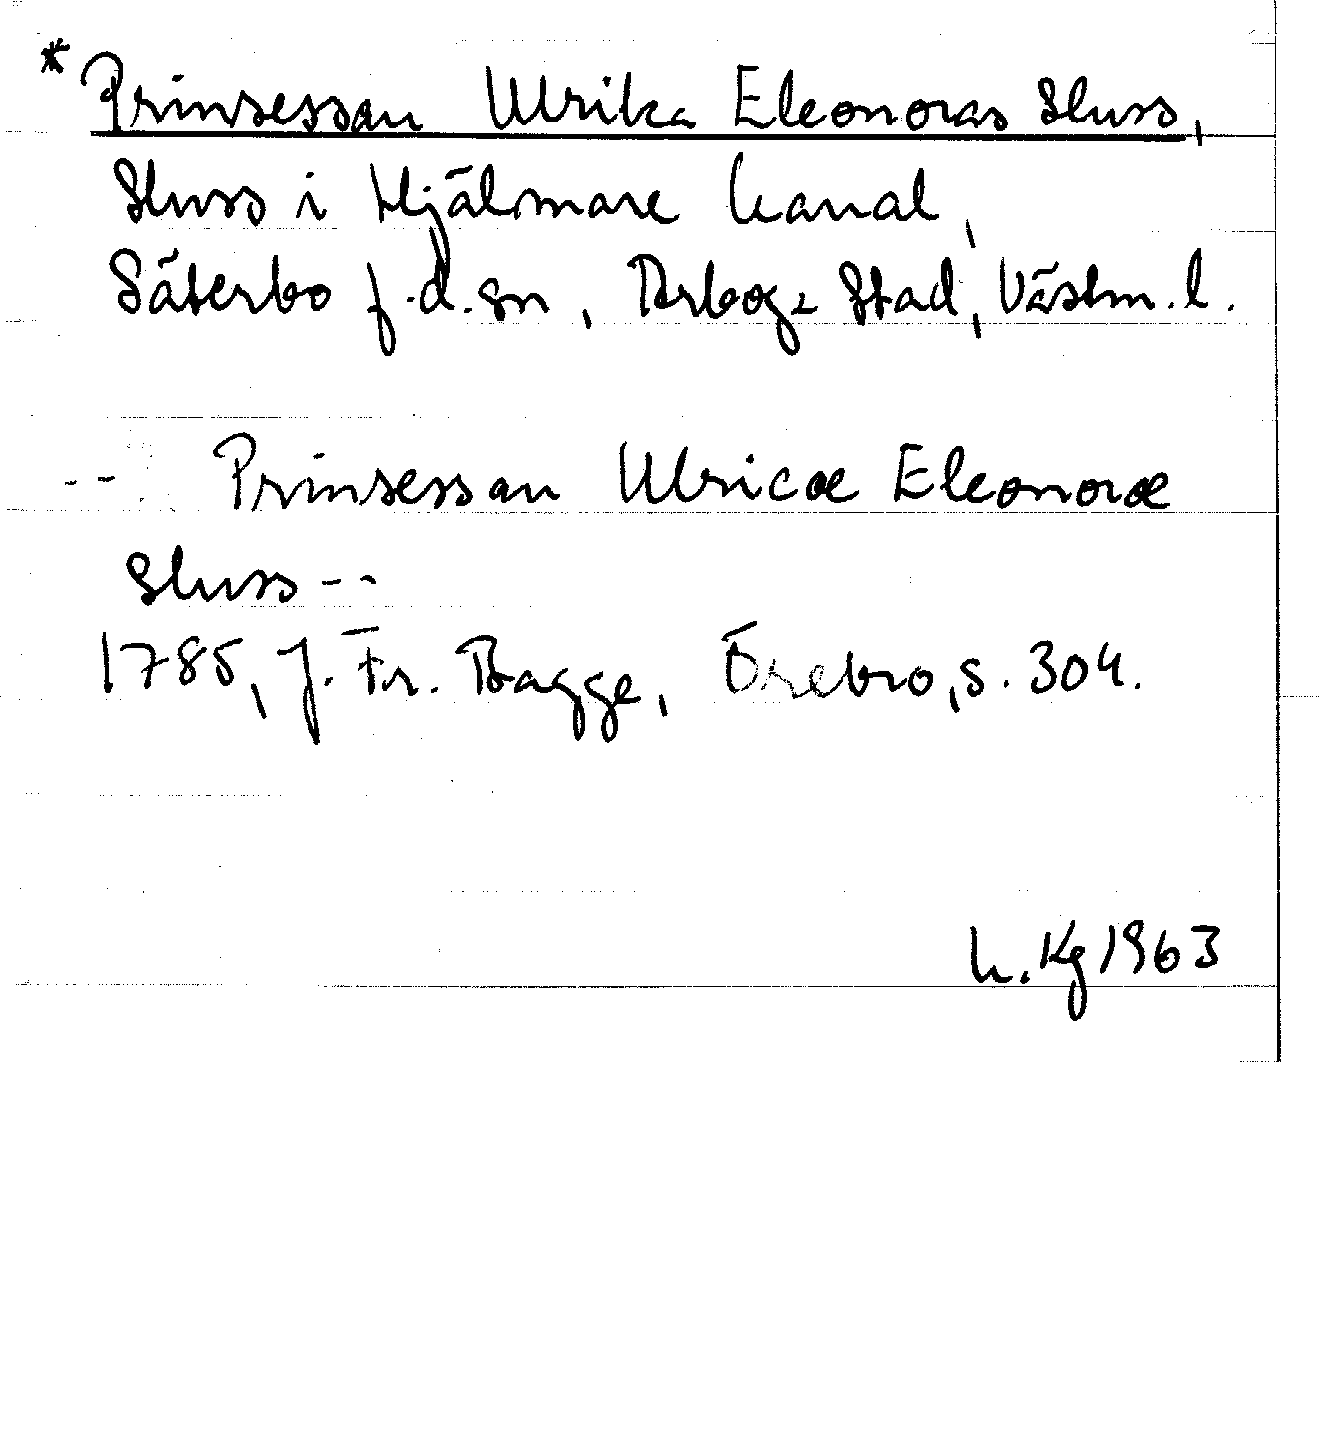 * Prinsessan Ulrika Eleonoras Sluss,
Sluss i Hjälmare kanal,
Säterbo f.d. sn, Arboga Stad, Västm. l.
-- Prinsessan Ulricæ Eleonoræ
Sluss --
1785, J. Fr. Bagge, Örebro, s. 304.
L. Kg 1963